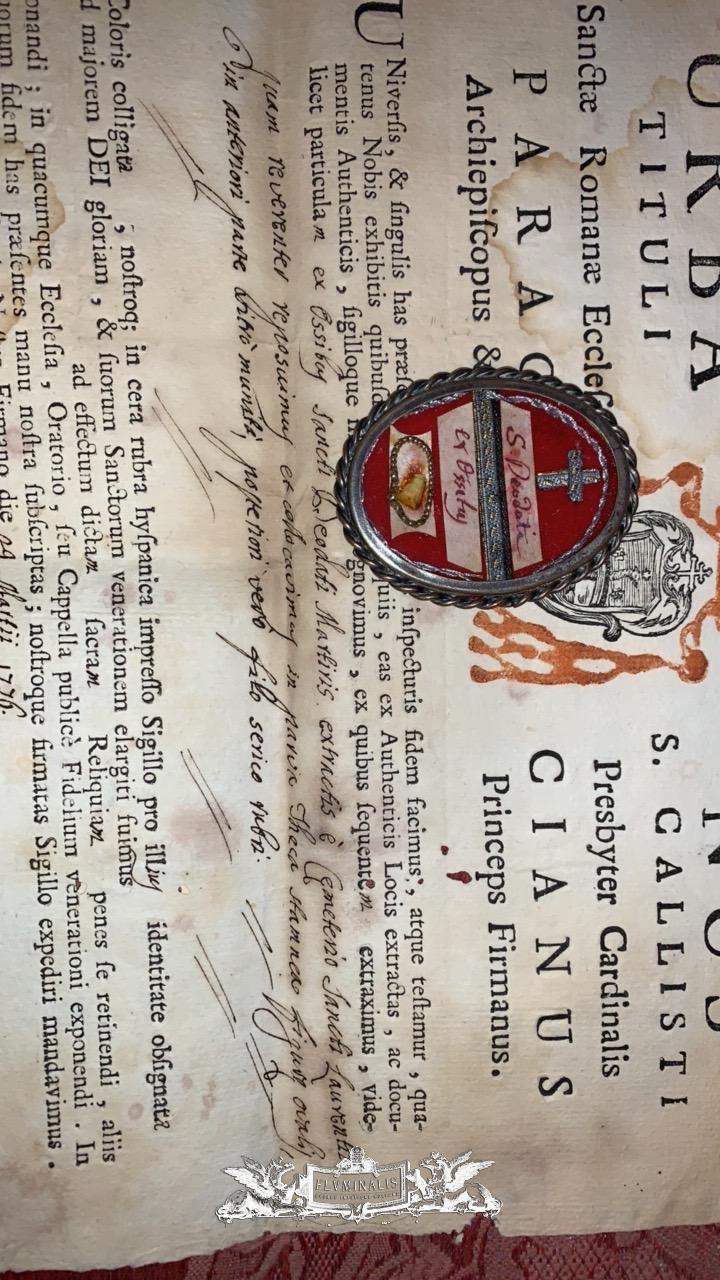 URBA N U S
TITULI S. CALLISTI
Sanctæ Romanæ Eccleſ Presbyter Cardinalis
PARAC CIANUS
Archiepiſcopus & Princeps Firmanus.
UNiverſis, & ſingulis has præſ inſpecturis fidem facimus, atque teſtamur, qua-
tenus Nobis exhibitis quibuſd quiis, eas ex Authenticis Locis extractas, ac docu-
mentis Authenticis, ſigilloque gnovimus, ex quibus ſequentem extraximus, vide-
licet particulam ex Ossibus Sancti Deodati Martiris extractis è Cemeterio Sancti Laurentii
quam reverenter reposuimus et collocavimus in parva Theca stannea figura ovalis
in anteriori parte vitro munita, posteriori vero filo serico rubri
Coloris colligata, noſtroq; in cera rubra hyſpanica impreſſo Sigillo pro illius identitate obſignata
d majorem DEI gloriam, & ſuorum Sanctorum venerationem elargiti fuimus
ad effectum dictam ſacram Reliquiam penes ſe retinendi, aliis
onandi; in quacumque Eccleſia, Oratorio, ſeu Cappella publicè Fidelium venerationi exponendi. In
quorum fidem has præſentes manu noſtra ſubſcriptas; noſtroque firmatas Sigillo expediri mandavimus.
Firmano die 24 Martii 1776.
S. Deodati
ex Ossibus
FLVMINALIS